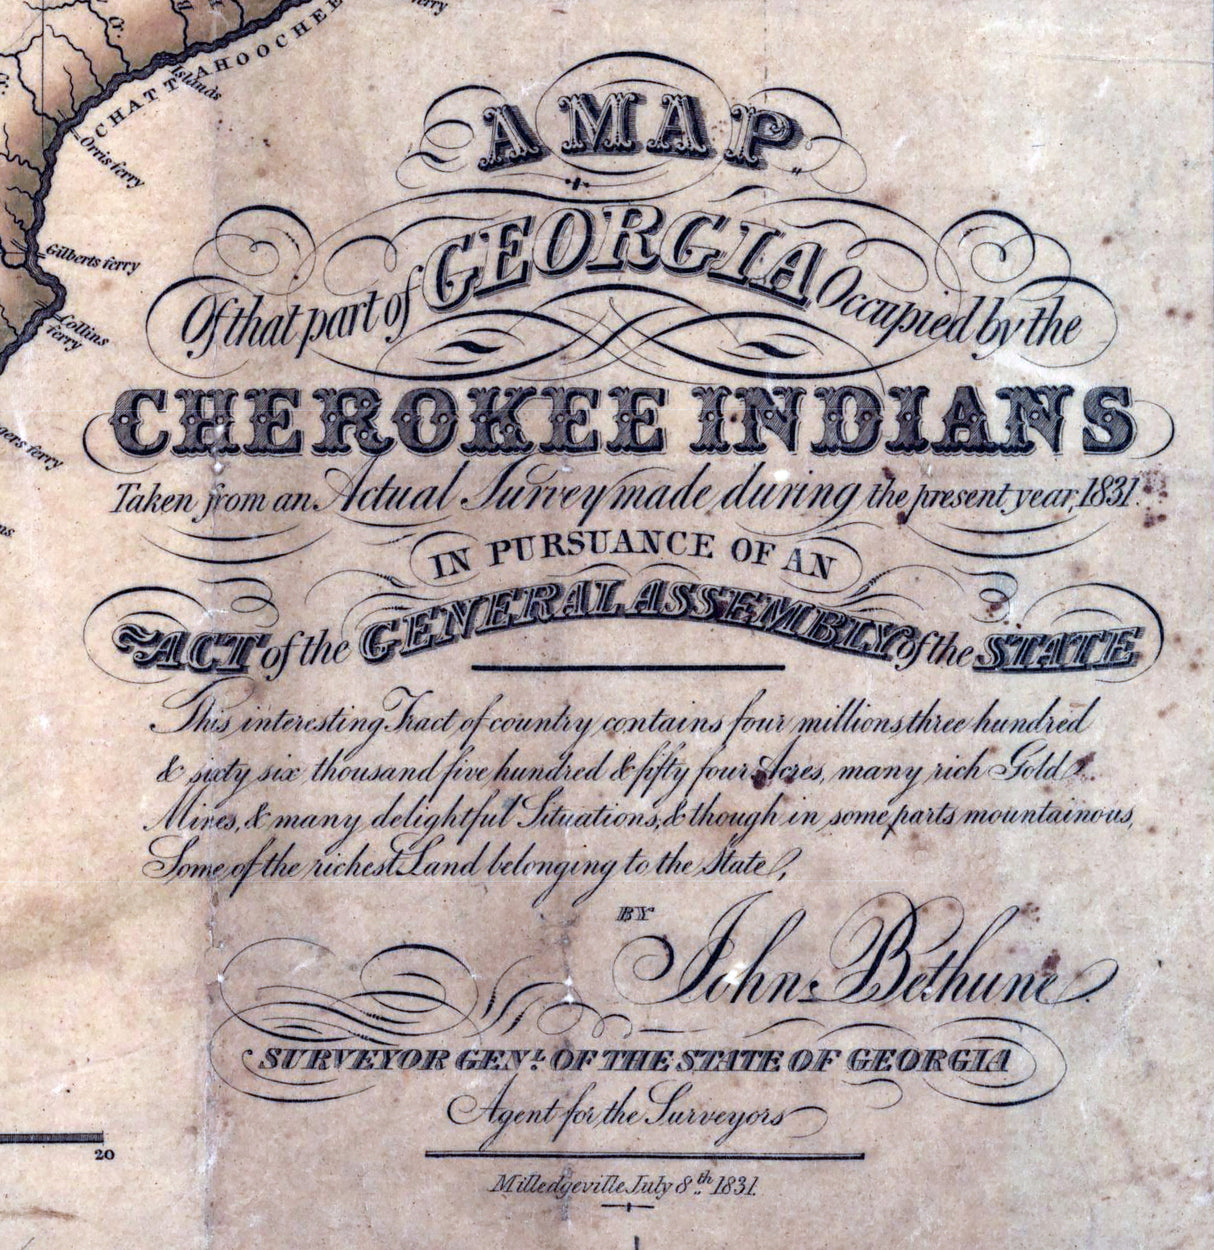 CHATTAHOOCHEE
Islands
Orris ferry
Gilberts ferry
Collins
ferry
ferry
A MAP
Of that part of GEORGIA Occupied by the
CHEROKEE INDIANS
Taken from an Actual Survey made during the present year, 1831.
IN PURSUANCE OF AN
ACT of the GENERAL ASSEMBLY of the STATE
This interesting Tract of country contains four millions three hundred
& sixty six thousand five hundred & fifty four Acres, many rich Gold
Mines, & many delightful Situations, & though in some parts mountainous,
Some of the richest Land belonging to the State,
BY
John Bethune
SURVEYOR GENL. OF THE STATE OF GEORGIA
Agent for the Surveyors
20
Milledgeville July 8th 1831.